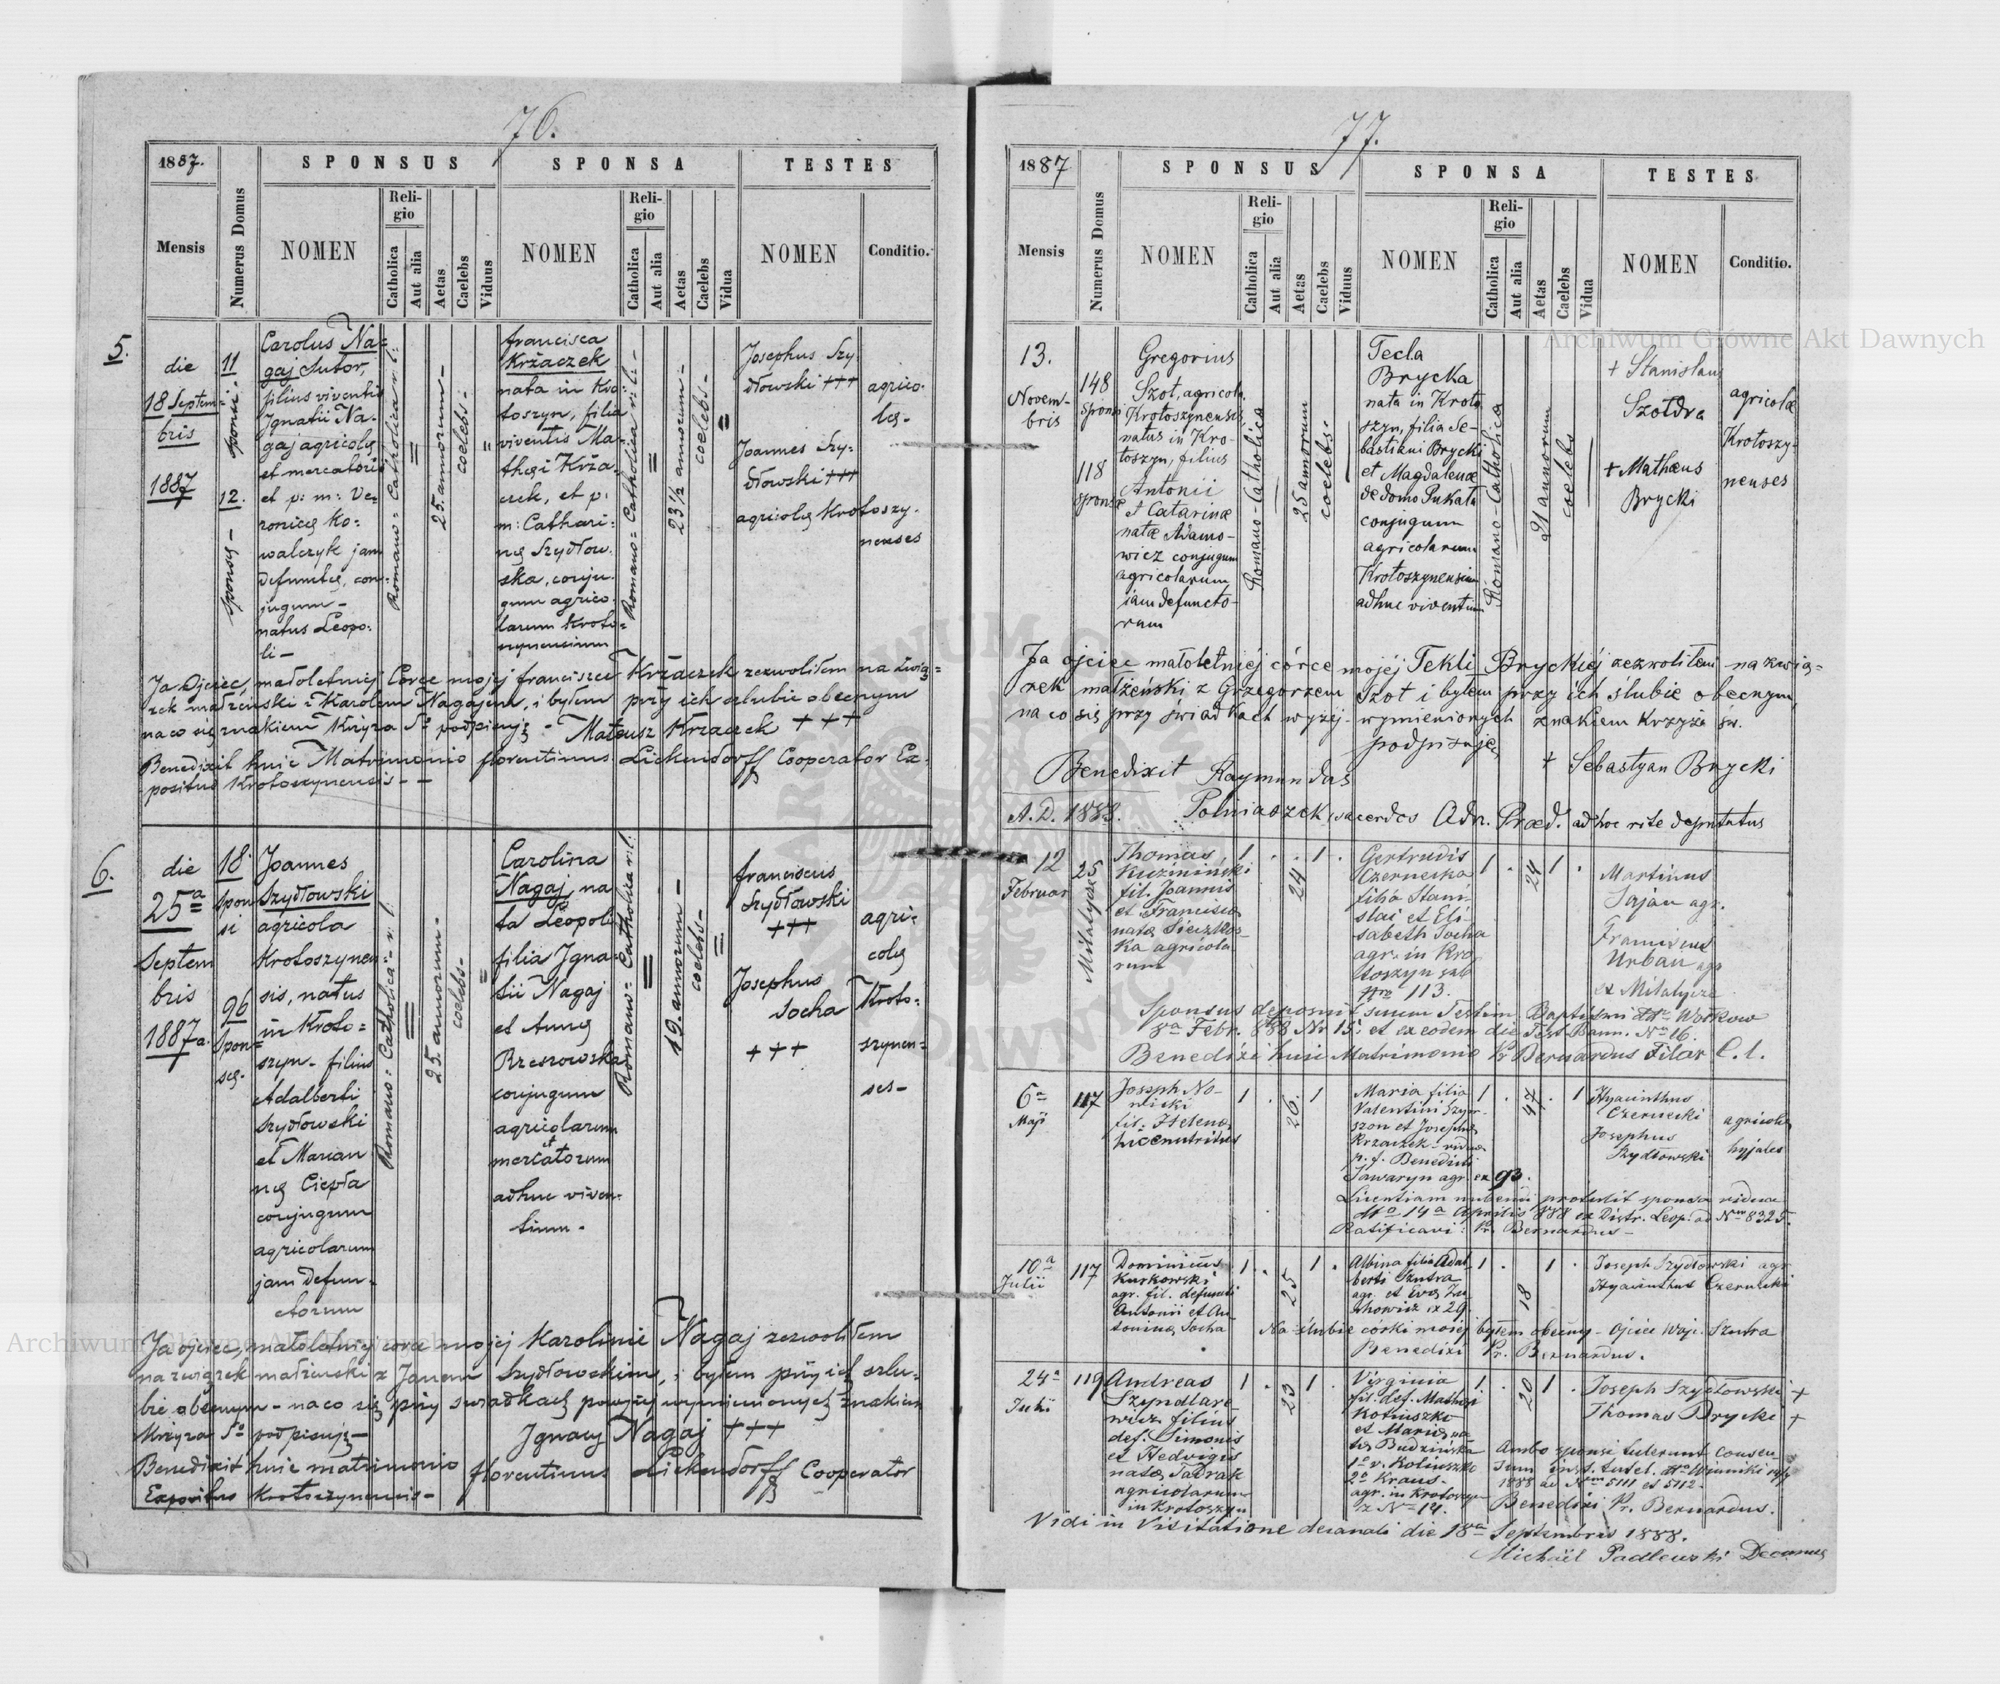 76.
1887.
SPONSUS
SPONSA
TESTES
Mensis
Numerus Domus
NOMEN
Religio
Catholica
Aut alia
Aetas
Caelebs
Viduus
NOMEN
Religio
Catholica
Aut alia
Aetas
Caelebs
Vidua
NOMEN
Conditio.
5.
die
18 Septem-
bris
1887
11
sponsi.
12.
sponsę
Carolus Na=
gaj Sutor,
filius viventis
Ignatii Na-
gaj agricolę
et mercatoris
et p: m: Ve-
ronicę Ko=
walczyk jam
defunctę, con-
jugum-
natus Leopo:
li-
Romano=Catholica r. l:
=
25. annorum-
coelebs-
=
francisca
Krżaczek
nata in Kro
toszyn, filia
viventis Ma-
theęi Krża-
czek, et p:
m: Cathari-
nę Szydłow-
ska, conju-
gum agrico-
larum Kroto=
szynensium
Romano=Catholica r: l:-
=
23 1/2 annorum-
coelebs-
=
Josephus Szy-
dłowski +++
Joannes Szy-
dłowski +++
agricolę Krotoszy-
nenses
agrico-
lę-
Ja Ojciec, małoletniej Corce mojej francisce Krżaczek zezwoliłem na zwią=
zek małżenski z Karolem Nagajem, i byłem przy ich szlubie obecnym
na co się znakiem Krzyża So podpisuję - Mateusz Krzaczek +++
Benedixit huic Matrimonio florentinus Lickendorff Cooperator Ex-
positus Krotoszynensis--
6.
die
25a
Septem
bris
1887a.
18.
spon
si
96
Spon=
sę-
Joannes
Szydłowski
agricola
Krotoszynen
sis, natus
in Kroto=
szyn-filius
Adalberti
Szydłowski
et Marian
nę Ciepła
conjugum
agricolarum
jam defun-
ctorum
Romano=Catholica=r: l.
=
25. annorum-
coelebs-
=
Carolina
Nagaj na
ta Leopoli
filia Igna-
tii Nagaj
et Annę
Rzeszowska
conjugum
agricolarum
et
mercatorum
adhuc viven-
tium-
Romano=Catholica r: l.
=
19. annorum-
coelebs-
=
franciscus
Szydłowski
+++
Josephus
Socha
+++
agri-
colę
Kroto=
szynen=
ses-
Ja ojciec, małoletniej corce mojej Karolinie Nagaj zezwoliłem
na związek małżenski z Janem Szydłowskim, i byłem przy ich szlu-
bie obecnym- na co się przy swiadkach powyżej wymienionych znakiem
Krzyża So podpisuję- Ignacy Nagaj +++
Benedixit huic matrimonio florentinus Lickendorff Cooperator
Expositus Krotoszynensis-
77.
1887
SPONSUS
SPONSA
TESTES
Mensis
Numerus Domus
NOMEN
Religio
Catholica
Aut alia
Aetas
Caelebs
Viduus
NOMEN
Religio
Catholica
Aut alia
Aetas
Caelebs
Vidua
NOMEN
Conditio.
13.
Novem-
bris
148
sponsi
118
sponsæ
Gregorius
Szot, agricola
Krotoszynensis
natus in Kro-
toszyn, filius
Antonii
et Catarinæ
natæ Adamo-
wicz conjugum
agricolarum
jam defuncto-
rum
Romano-Catholica
25 annorum
coelebs-
Tecla
Brycka
nata in Kroto
szyn, filia Se-
bastiani Brycki
et Magdalenæ
de domo Pukała
conjugum
agricolarum
Krotoszynensium
adhuc viventium
Romano-Catholica
21 annorum
coelebs
+ Stanislaus
Szotdra
+ Mathæus
Brycki
agricolæ
Krotoszy-
nenses
Ja ojciec małoletniéj córce mojéj Tekli Bryckiéj zezwoliłem na zwią-
zek małżeński z Grzegorzem Szot i byłem przy ich ślubie obecnym,
na co się przy świadkach wyżéj-wymienionych znakiem krzyża św.
podpisuję
+ Sebastyan Brycki
Benedixit Raymundus
Polniaszek, sacerdos Adr. Præd. ad hoc rite deputatus
A.D. 1888.
12
Februar
25
Milatycze
Thomas
Kuziniński
fil. Joannis
et Francisca
natę Sieczkow-
ka agricola
rum
1 . . 1 .
24
Gertrudis
Czernecka
filia Stani-
slai et Eli-
sabeth Socha
agr. in Kro
toszyn sub
Nro 113.
1 . 1 .
24
Martinus
Sajan agr.
Franciscus
Urban agr
ex Milatycze
Sponsus deposuit suum Testim. Baptismi dto Wołkow
8va Febr. 888 Nr 15. et ex eodem die Test. Bann. No 16.
Benedixi huic Matrimonio Pr Bernardus Filar C. l.
6a
Maji
117
Joseph No-
wicki
fil. Helenæ
hic enutritus
1 . 1
26.
Maria filia
Valentini Szym-
szon et Josephæ
Krzaczek-vidua
p. f. Benedicti
Jawaryn agr. ex 93.
1 . . 1
47
Hyacinthus
Czernecki
Josephus
Szydłowski
agricolę
hyjates
Licentiam nubendi protulit sponsa vidua
dto 14a Aprilis 888 ex Distr. Leop. ad Nrm 8325.
Ratificavi: Pr. Bernardus-
10a
Julii
117
Dominicus
Kurkowski
agr. fil. defuncti
Antonii et An
toninæ Socha
1 . . 1 .
25
Albina filia Adal
berti Szutra
agr. et Evę Lu
chowicz ex 29.
1 . 1 .
18
Joseph Szydłowski agr
Hyacinthus Czernecki
Na ślubie córki mojej byłem obecny- ojciec Wojc. Szutra
Benedixi Pr. Bernardus.
24a
Julii
119
Andreas
Szyndlare
wicz filius
def. Simonis
et Hedvigis
natæ Sadrak
agricolarum
in Krotoszyn
1 . 1 .
23
Virginia
fil. def. Mathæi
Kotiuszko
et Mariæ na
tæ Budzińska
1o v. Kotiuszko
2o Kraus-
agr. in Krotoszyn
ex No 14.
1 . 1 .
20
Joseph Szydłowski +
Thomas Brycki +
Ambo sponsi tulerunt consen
sum inst. tutel. dto Winniki
1888 ad Nrm 5111 et 5112-
Benedixi Pr. Bernardus.
Vidi in Visitatione decanali die 18va Septembris 1888.
Michaël Padlewski Decanus
Archiwum Główne Akt Dawnych
Archiwum Główne Akt Dawnych
ARCHIWUM GŁÓWNE AKT DAWNYCH